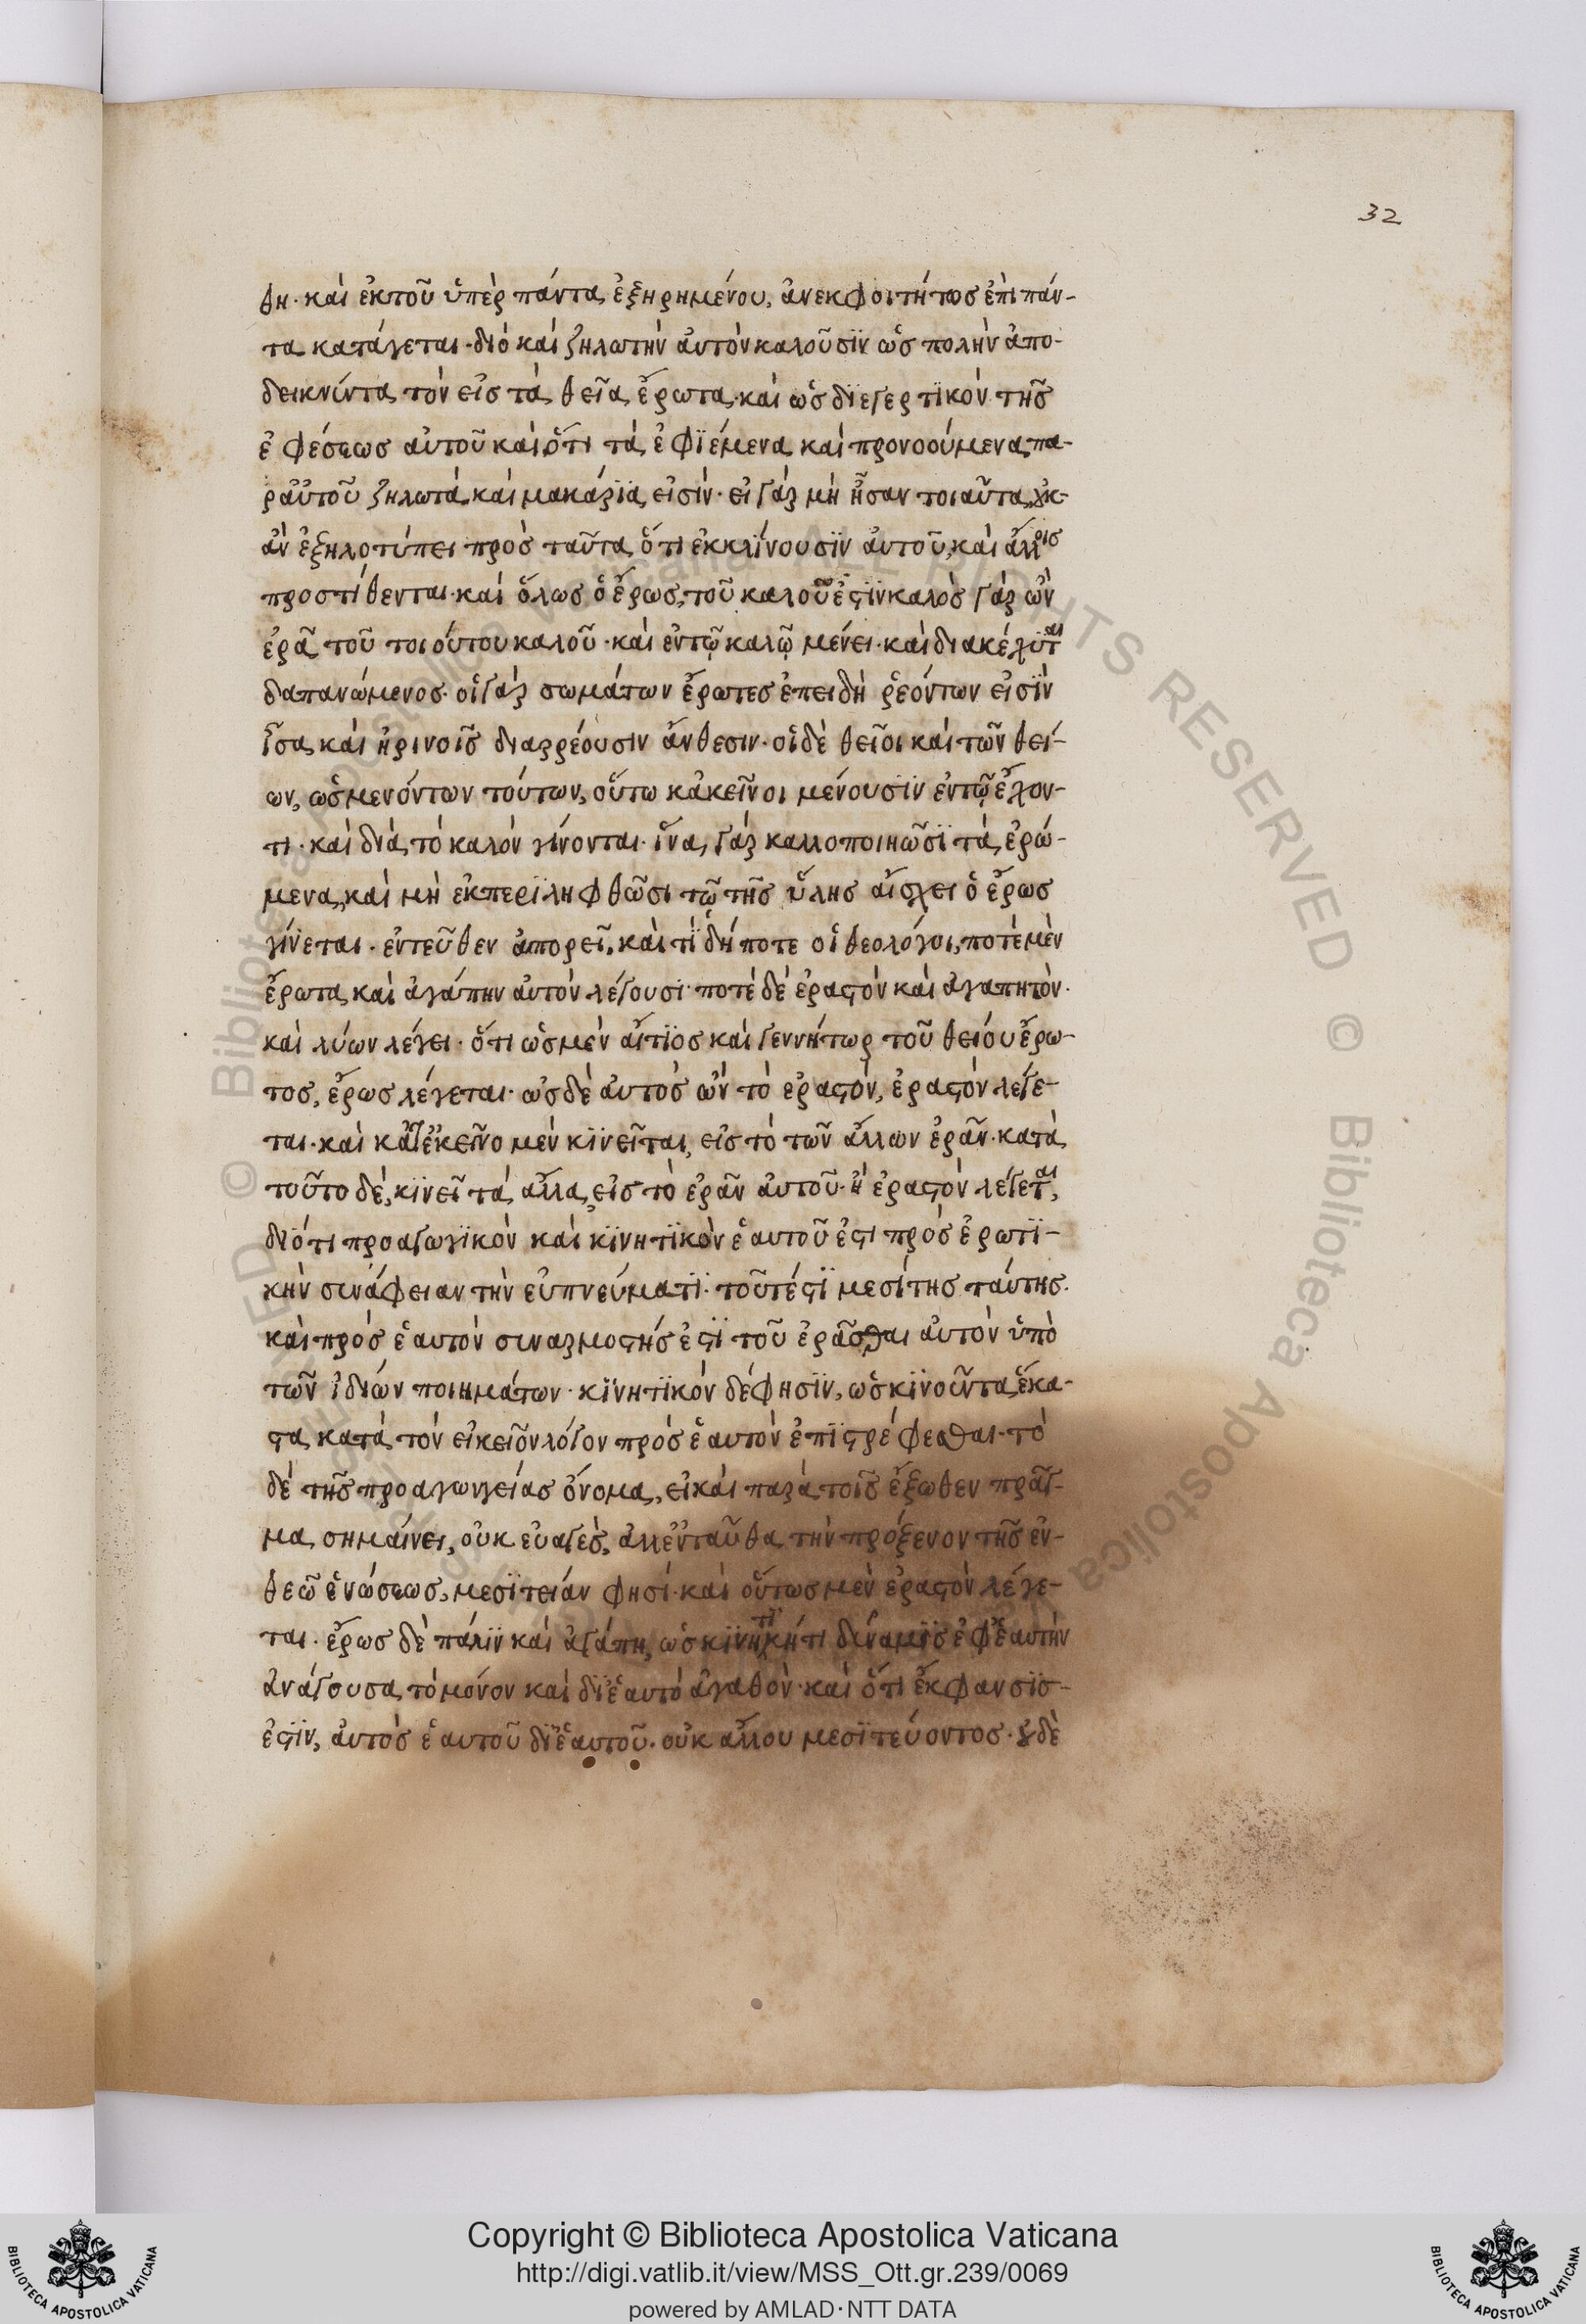 32
θη· καὶ ἐκτοῦ ὑπὲρ πάντα ἐξῃρημένου, ἀνεκφοιτήτως ἐπι πάν-
τα κατάγεται· διό καὶ ζηλωτήν αὐτὸν καλοῦσϊν ὡς πολὴν ἀπο-
δεικνύντα τὸν εἰς τὰ θεῖα ἔρωτα· καὶ ὡς διεγερτϊκόν τῆς
ἐφέσεως αὐτοῦ καὶ ὅτι τὰ ἐφϊέμενα καὶ προνοούμενα πα-
ραὐτοῦ ζηλωτά καὶ μακάρϊα εἰσίν· εἰ γάρ μὴ ἦσαν τοιαῦτα, οὐκ
ἀν ἐζηλοτύπει πρὸς ταῦτα ὅτι ἐκκλίνουσϊν αὐτοῦ, καὶ ἄλλοις
προστίθενται· καὶ ὅλως ὁ ἔρως, τοῦ καλοῦ ἐστϊν καλὸς γάρ ὢν
ἐρᾶ τοῦ τοιούτου καλοῦ· καὶ ἐντῷ καλῷ μένει· καὶ διακέχυται
δαπανώμενος· οἱ γάρ σωμάτων ἔρωτες ἐπειδὴ ῥεόντων εἰσϊν
ἶσα καὶ ἠρινοῖς διαρρέουσιν ἄνθεσιν· οἱ δὲ θεῖοι καὶ τῶν θεί-
ων, ὡς μενόντων τούτων, οὕτω κἀκεῖνοι μένουσϊν ἐντῷ ἔχον-
τι· καὶ διὰ τὸ καλόν γίνονται· ἵνα γάρ καλλοποιηῶσϊ τὰ ἐρώ-
μενα, καὶ μὴ ἐκπερϊληφθῶσι τῷ τῆς ὕλης αἴσχει ὁ ἔρως
γίνεται· ἐντεῦθεν ἀπορεῖ, καὶ τί δήποτε οἱ θεολόγοι, ποτὲ μὲν
ἔρωτα καὶ ἀγάπην αὐτὸν λέγουσϊ· ποτὲ δὲ ἐραστόν καὶ ἀγαπητὸν·
καὶ λύων λέγει· ὅτι ὡς μὲν αἴτϊος καὶ γεννήτωρ τοῦ θείου ἔρω-
τος, ἔρως λέγεται· ὡς δὲ αὐτὸς ὢν τὸ ἐραστόν, ἐραστόν λέγε-
ται· καὶ κατ' ἐκεῖνο μὲν κϊνεῖται, εἰς τὸ τῶν ἄλλων ἐρᾶν· κατὰ
τοῦτο δὲ, κϊνεῖ τὰ ἄλλα, εἰς τὸ ἐρᾶν αὐτοῦ· ἢ ἐραστὸν λέγεται,
διότι προαγωγϊκὸν καὶ κϊνητϊκὸν ἑαυτοῦ ἐστι πρὸς ἐρωτϊ-
κὴν συνάφειαν τὴν εὐπνεύματϊ· τοῦτέστϊ μεσίτης ταύτης·
καὶ πρὸς ἑαυτὸν συναρμοστής ἐστϊ τοῦ ἐρᾶσθαι αὐτὸν ὑπὸ
τῶν ἰδίων ποιημάτων· κϊνητϊκόν δέ φησϊν, ὡς κϊνοῦντα ἕκα-
στα κατὰ τὸν εἰκεῖον λόγον πρὸς ἑαυτὸν ἐπϊστρέφεσθαι· τὸ
δὲ τῆς προαγωγείας ὄνομα, εἰ καὶ παρὰ τοῖς ἔξωθεν πρᾶγ-
μα σημαίνει, οὐκ εὐαγὲς, ἀλλἐνταῦθα τὴν πρόξενον τῆς ἐν-
θεῶ ἑνώσεως, μεσϊτείαν φησί· καὶ οὕτως μὲν ἐραστὸν λέγε-
ται· ἔρως δὲ πάλϊν καὶ ἀγάπη, ὡς κϊνητικήτι δύναμϊς ἐφἑαυτὴν
ἀνάγουσα, τὸ μόνον καὶ δϊἑαυτό ἀγαθὸν· καὶ ὅτι ἔκφανσϊς-
ἐστϊν, αὐτὸς ἑαυτοῦ δϊἑαυτοῦ· οὐκ ἄλλου μεσϊτεύοντος· οὐδὲ
© Biblioteca Apostolica Vaticana ALL RIGHTS RESERVED
Copyright © Biblioteca Apostolica Vaticana
http://digi.vatlib.it/view/MSS_Ott.gr.239/0069
powered by AMLAD·NTT DATA
BIBLIOTECA APOSTOLICA VATICANA
BIBLIOTECA APOSTOLICA VATICANA